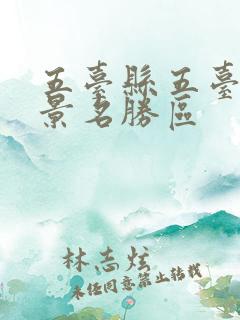 五臺縣五臺
景名勝區
林志炫
未經同意禁止轉載